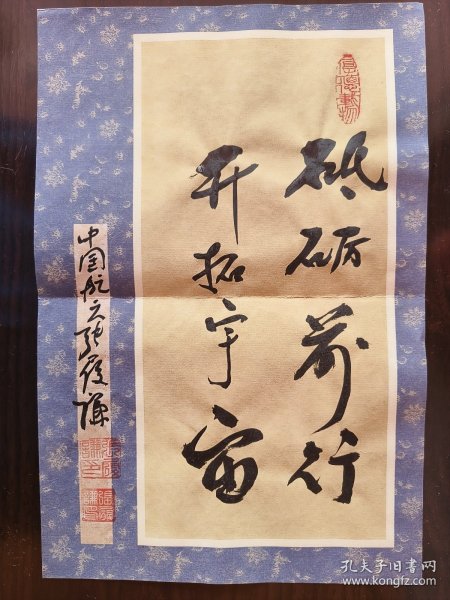 砥砺前行
开拓宇宙
中国航天张履谦
孔夫子旧书网
www.kongfz.com